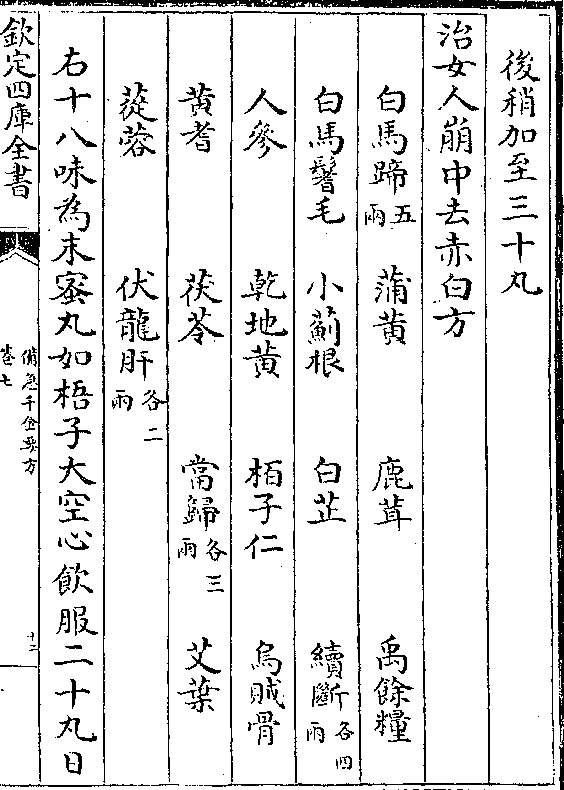 後稍加至三十丸
治女人崩中去赤白方
白馬蹄五兩 蒲黄 鹿茸 禹餘糧
白馬鬐毛 小薊根 白芷 續斷各四兩
人參 乾地黄 栢子仁 烏賊骨
黄耆 茯苓 當歸各三兩 艾葉
蓯蓉 伏龍肝各二兩
右十八味為末蜜丸如梧子大空心飲服二十丸日
欽定四庫全書
備急千金要方
卷七
十二